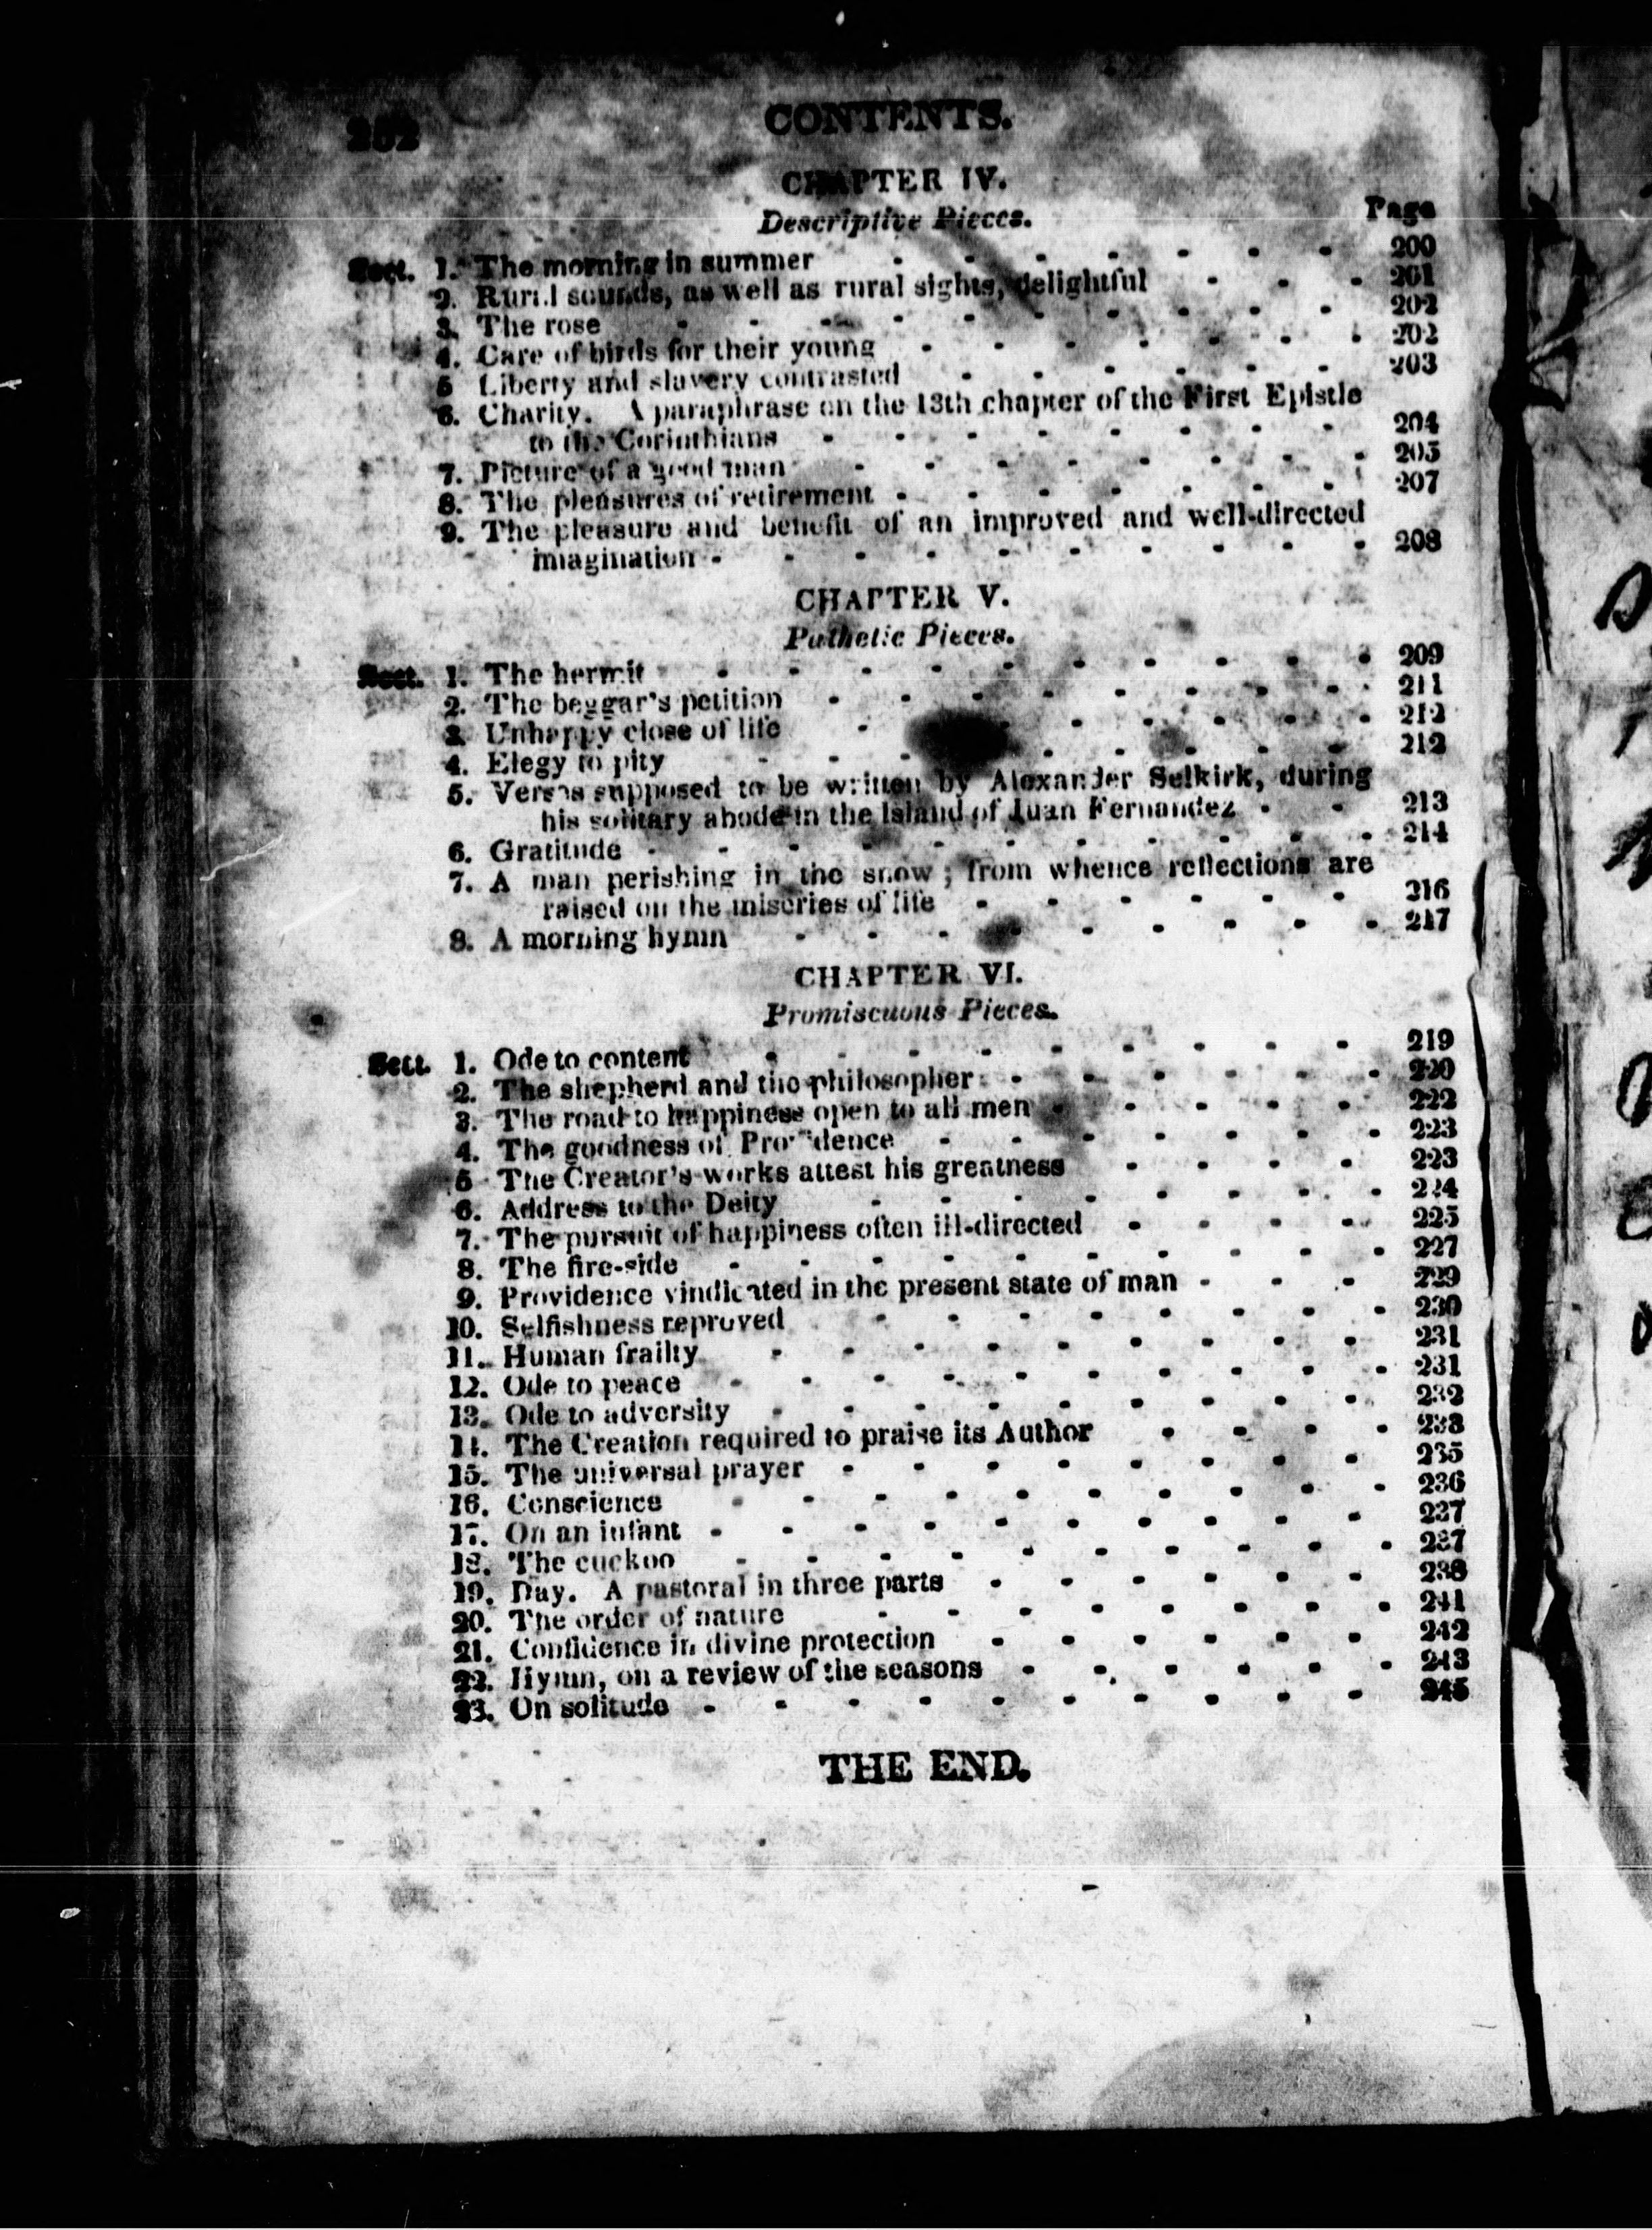 252 CONTENTS.
CHAPTER IV.
Descriptive Pieces.
Page
Sect. 1. The morning in summer - - - - - - - 200
2. Rural sounds, as well as rural sights, delightful - - - 201
3. The rose - - - - - - - - - - 202
4. Care of birds for their young - - - - - - - 202
5 Liberty and slavery contrasted - - - - - - 203
6. Charity. A paraphrase on the 13th chapter of the First Epistle
to the Corinthians - - - - - - - - 204
7. Picture of a good man - - - - - - - - 205
8. The pleasures of retirement - - - - - - - 207
9. The pleasure and benefit of an improved and well-directed
imagination - - - - - - - - - - 208
CHAPTER V.
Pathetic Pieces.
Sect. 1. The hermit - - - - - - - - - - 209
2. The beggar's petition - - - - - - - - 211
3. Unhappy close of life - - - - - - - - 212
4. Elegy to pity - - - - - - - - - 212
5. Verses supposed to be written by Alexander Selkirk, during
his solitary abode in the Island of Juan Fernandez - - 213
6. Gratitude - - - - - - - - - - 214
7. A man perishing in the snow ; from whence reflections are
raised on the miseries of life - - - - - - 216
8. A morning hymn - - - - - - - - - 217
CHAPTER VI.
Promiscuous Pieces.
Sect. 1. Ode to content - - - - - - - - - 219
2. The shepherd and the philosopher - - - - - - 220
3. The road to happiness open to all men - - - - - 222
4. The goodness of Providence - - - - - - - 223
5 The Creator's works attest his greatness - - - - 223
6. Address to the Deity - - - - - - - - 224
7. The pursuit of happiness often ill-directed - - - - 225
8. The fire-side - - - - - - - - - - 227
9. Providence vindicated in the present state of man - - - 229
10. Selfishness reproved - - - - - - - - 230
11. Human frailty - - - - - - - - - 231
12. Ode to peace - - - - - - - - - - 231
13. Ode to adversity - - - - - - - - - 232
14. The Creation required to praise its Author - - - - 233
15. The universal prayer - - - - - - - - 235
16. Conscience - - - - - - - - - - 236
17. On an infant - - - - - - - - - - 237
18. The cuckoo - - - - - - - - - - 237
19. Day. A pastoral in three parts - - - - - - 238
20. The order of nature - - - - - - - - 241
21. Confidence in divine protection - - - - - - 242
22. Hymn, on a review of the seasons - - - - - - 243
23. On solitude - - - - - - - - - - 245
THE END.